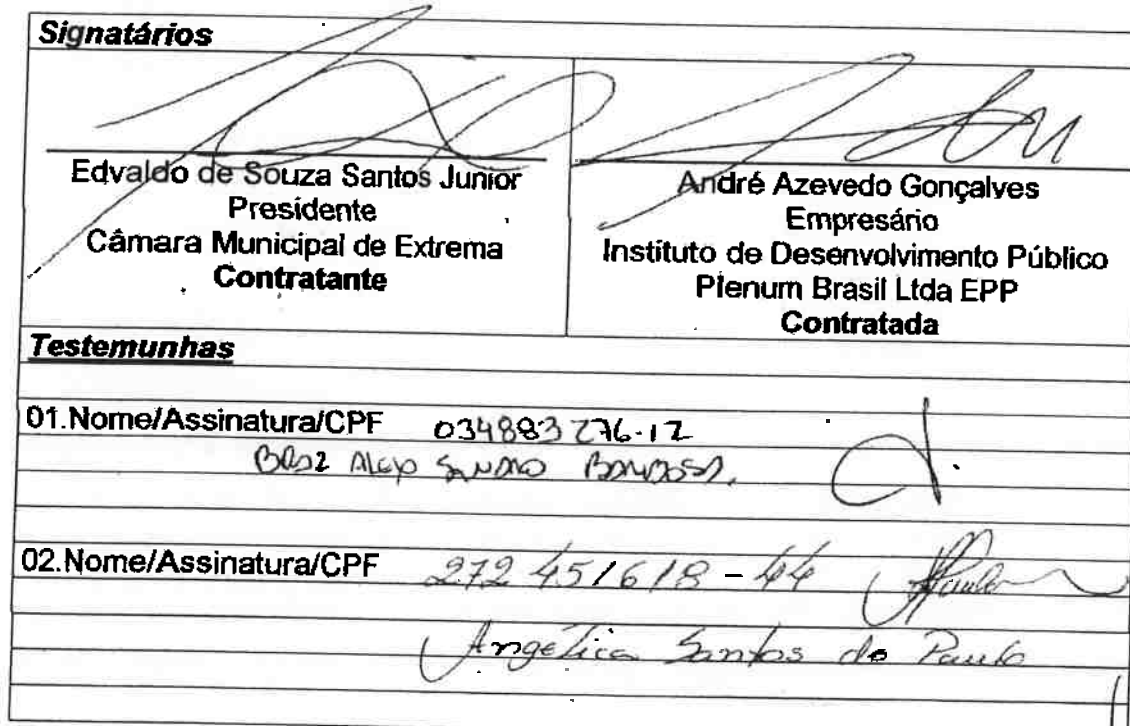 Signatários
Edvaldo de Souza Santos Junior
Presidente
Câmara Municipal de Extrema
Contratante
André Azevedo Gonçalves
Empresário
Instituto de Desenvolvimento Público
Plenum Brasil Ltda EPP
Contratada
Testemunhas
01.Nome/Assinatura/CPF 034883276-12
02.Nome/Assinatura/CPF 272 451618-44
Angélica Santos de Paula